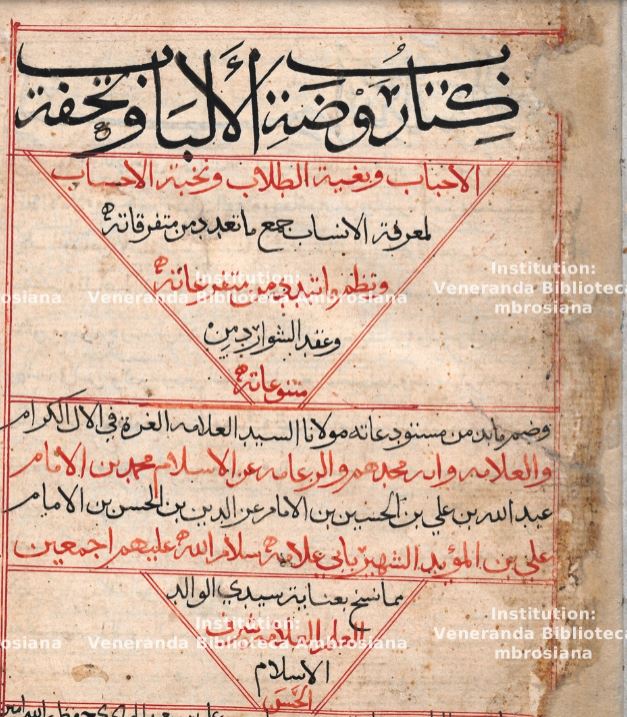 كتاب روضة الألباب وتحفة
الاحباب وبغية الطلاب ونخبة الاحساب
لمعرفة الانساب جمع ما تعدد من متفرقاته
ونظم واتبدد من متفرعاته
وعقد الشوارد من
متنوعاته
وضم ما بد من مستودعاته مولانا السيد العلامه الغرة في الال الكرام
والعلامه وابه مجدهم والزعامه عز الاسلام محمد بن الامام
عبد الله بن علي بن الحسين بن الامام عز الدين بن الحسن بن الامام
علي بن المؤيد الشهير بابي علامه سلام الله عليهم اجمعين
مما نسخ بعناية سيدي الوالد
العلم العلامه شرف
الاسلام
الحسن
Institution:
Veneranda Biblioteca
mbrosiana
osiana
Veneranda Biblioteca Ambrosiana
Institution:
Veneranda Biblioteca
mbrosiana
osiana
Veneranda Biblioteca Ambrosiana